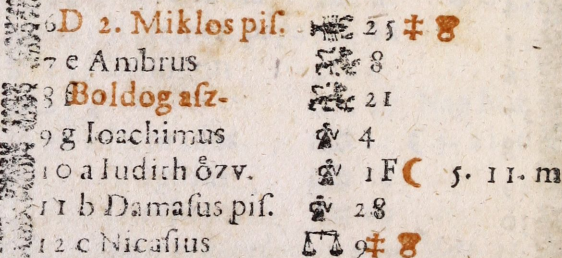 6D 2. Miklos piſ. 25 ‡
7 e Ambrus 8
8 f Boldog aſz- 21
9 g Ioachimus 4
10 a Iudith o̊zv. 1 F ☾ 5. 11. m
11 b Damaſus piſ. 28
12 c Nicaſius 9 ‡